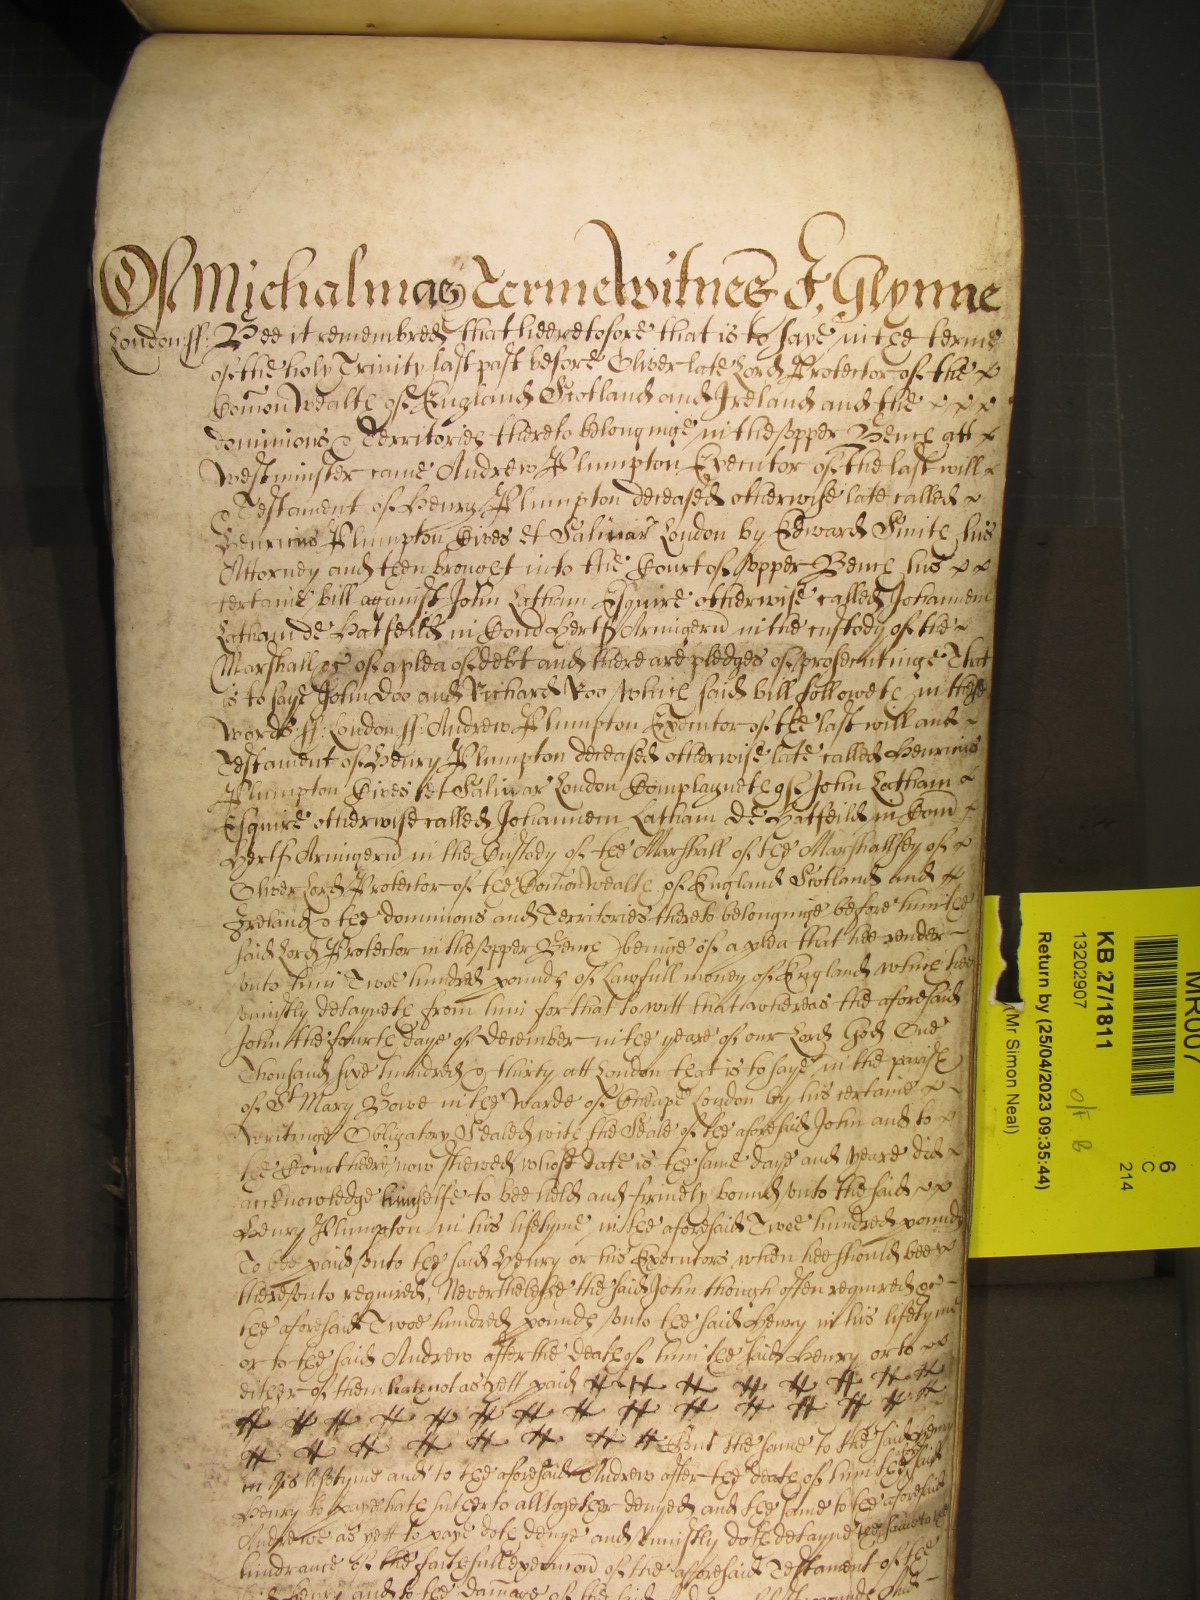 Of Michalmas Terme Witnes J, Glynne
London: ss: Bee it remembred that heeretofore that is to saye in the terme
of the holy Trinity last past before Oliver late Lord Protector of the
Com̃onWealth of England Scotland and Ireland and the
dominions & Territories thereto belonginge in the upper Bench att
Westminster came Andrew Plumpton Executor of the last will
& Testament of Henry Plumpton deceased otherwise late called
Henricus Plumpton Cives et Salinar London by Edward Smith his
Attorney and then brought into the Court of upper Bench his
certaine bill against John Latham Esquire otherwise called Johannem
Latham de Hatfeild in Com̃ Hertf Armigerū in the custody of the
Marshall &c of a plea of debt and there are pledges of prosecutinge That
is to saye John Doo and Richard Roo which said bill followeth in these
words: ss: London: ss: Andrew Plumpton Executor of the last will and
Testament of Henry Plumpton deceased otherwise late called Henricus
Plumpton Cives et Salinar London Complayneth of John Latham
Esquire otherwise called Johannem Latham de Hatfeild in Com̃
Hertf Armigerū in the Custody of the Marshall of the Marshallsey of
Oliver Lord Protector of the Com̃onWealth of England Scotland and
Ireland & the dominions and Territories thereto belonginge before him the
said Lord Protector in the upper Bench beinge of a plea that hee render
unto him Twoe hundred pounds of lawfull money of England which hee
uniustly detayneth from him for that to witt that whereas the aforesaid
John the fourth daye of December in the yeare of our Lord God One
Thousand sixe hundred & thirty att London that is to saye in the parish
of St Mary Bowe in the Warde of Cheape London by his certaine
Writinge Obligatory Sealed with the Seale of the aforesaid John and to
the Court heere now shewed whose date is the same daye and yeare did
acknowledge himselfe to bee held and firmely bound unto the said
Henry Plumpton in his lifetyme in the aforesaid Twoe hundred pounds
To bee paid unto the said Henry or his Executors when hee should bee
thereunto required, Neverthelesse the said John though often required &c
the aforesaid Twoe hundred pounds unto the said Henry in his lifetyme
or to the said Andrew after the death of him the said Henry or to
either of them hath not as yett paid
But the same to the said Henry
in his lifetyme and to the aforesaid Andrew after the death of him the said
Henry to paye hath hitherto alltogether denyed and the same to the aforesaid
Andrewe as yett to paye doth denye and uniustly doth detayne the
hindrance of the faithfull of the aforesaid Testament of the
said Henry and to the damage of the said
MR007
6
C
214
KB 27/1811
13202907
Return by (25/04/2023 09:35:44)
(Mr Simon Neal)